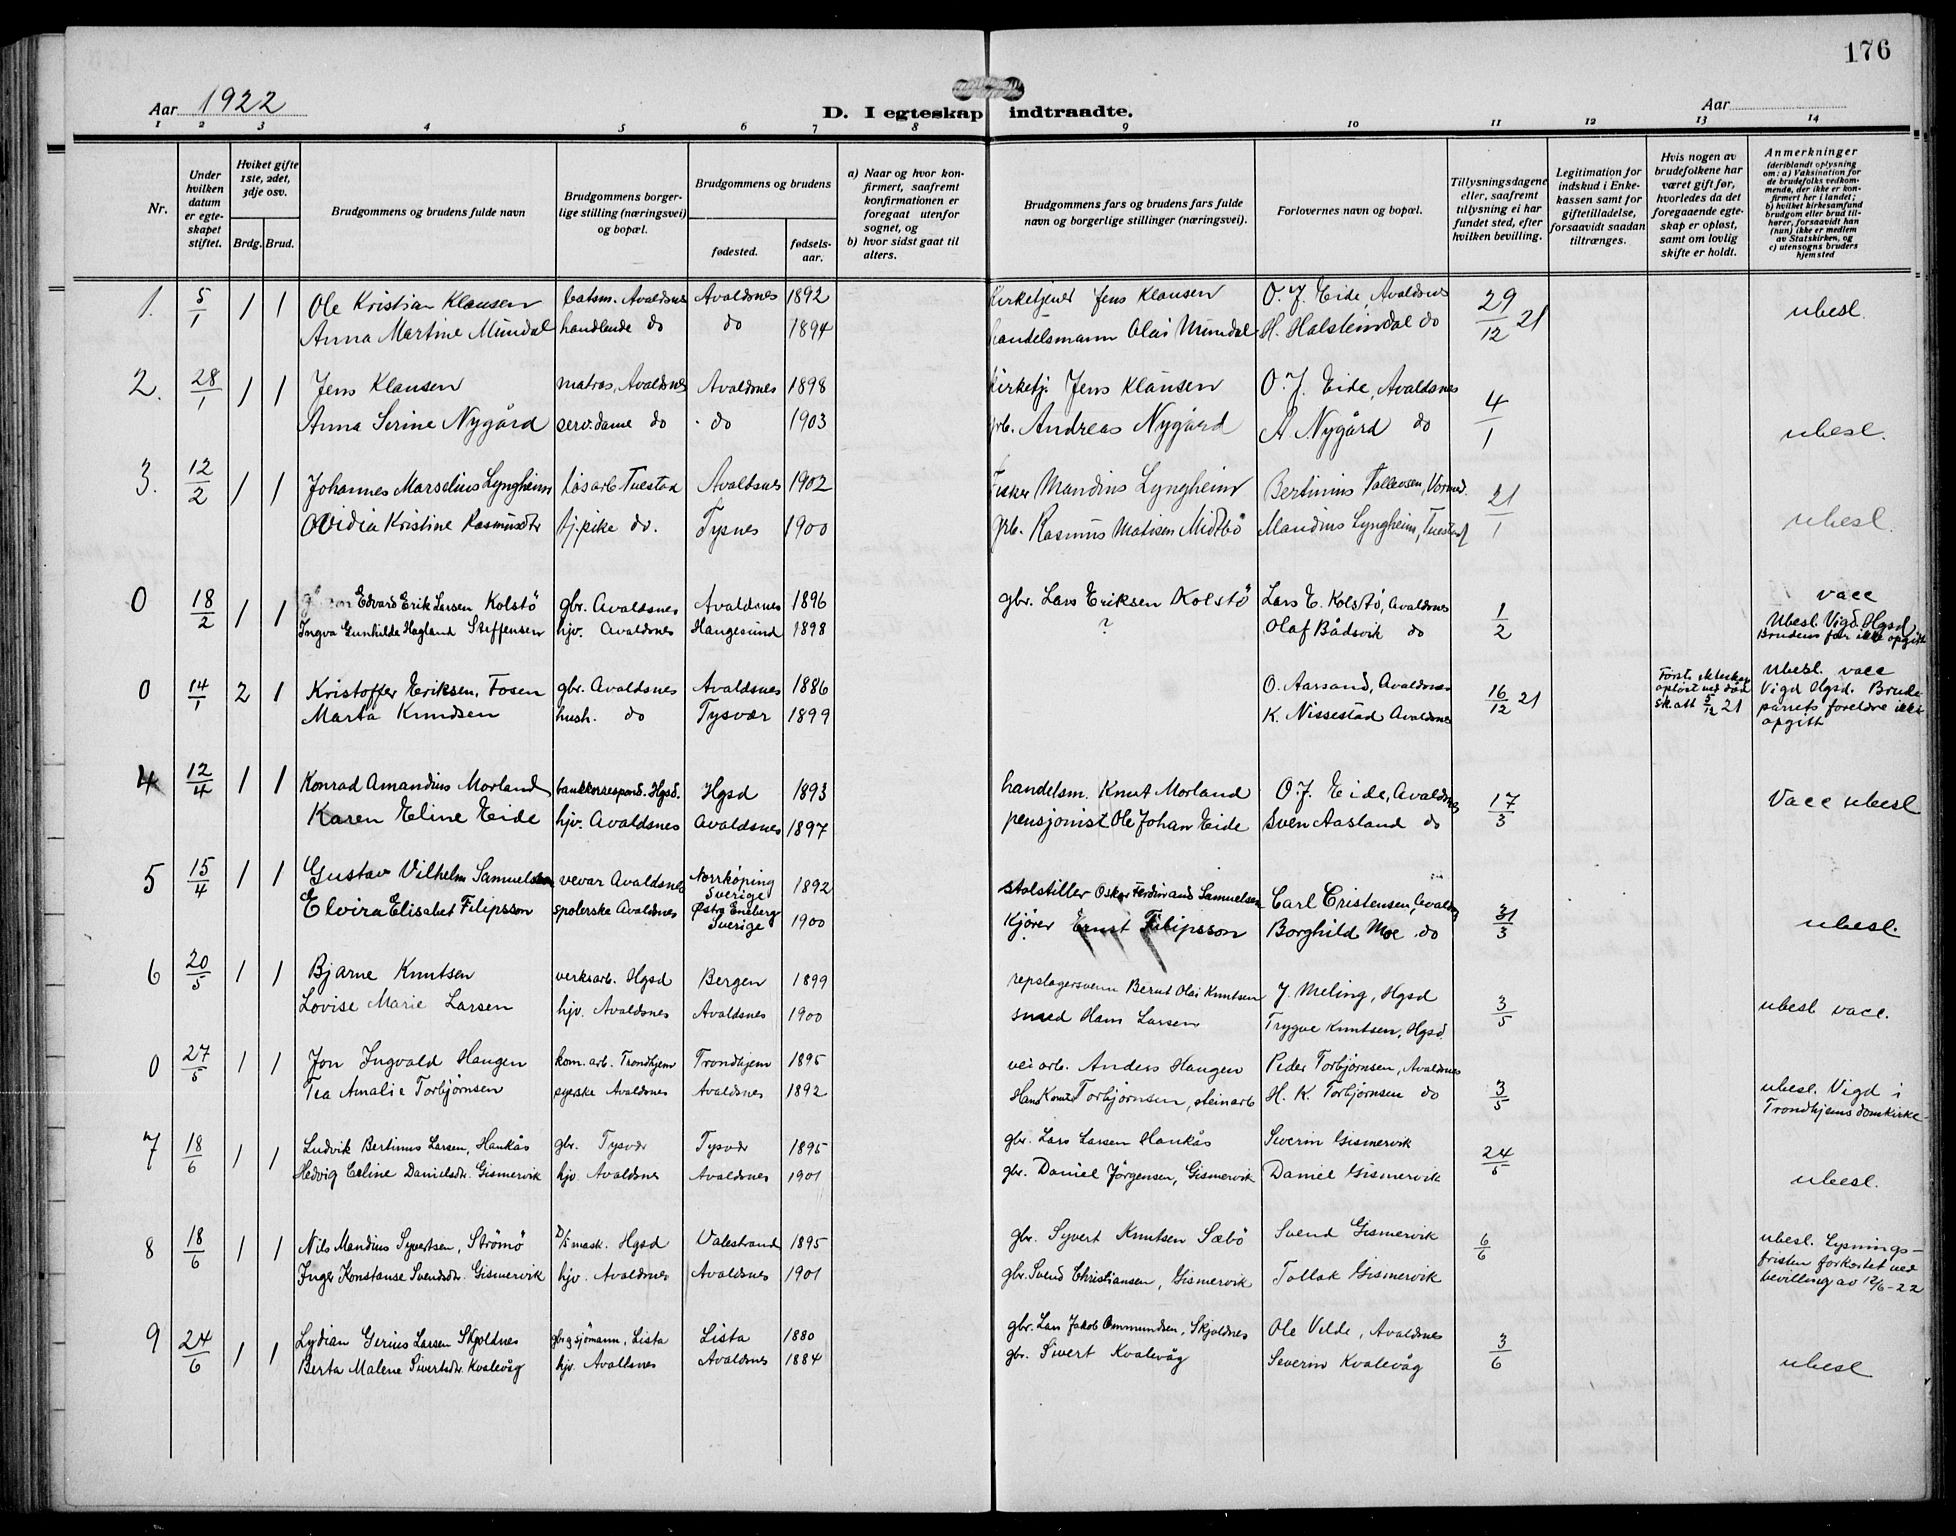 176
Aar 1922
D. I egteskap indtraadte.
Aar
1 2 3 4 5 6 7 8 9 10 11 12 13 14
Nr.
Under hvilken datum er egteskapet stiftet.
Hvilket gifte 1ste, 2det, 3dje osv.
Brdg. Brud.
Brudgommens og brudens fulde navn
Brudgommens borgerlige stilling (næringsvei) og bopæl.
Brudgommens og brudens
fødested. fødselsaar.
a) Naar og hvor konfirmert, saafremt konfirmationen er foregaat utenfor sognet, og
b) hvor sidst gaat til alters.
Brudgommens fars og brudens fars fulde navn og borgerlige stillinger (næringsvei).
Forlovernes navn og bopæl.
Tillysningsdagene eller, saafremt tillysning ei har fundet sted, efter hvilken bevilling.
Legitimation for indskud i Enkekassen samt for giftetilladelse, forsaavidt saadan tiltrænges.
Hvis nogen av brudefolkene har været gift før, hvorledes da det foregaaende egteskap er opløst, samt om lovlig skifte er holdt.
Anmerkninger (deriblandt oplysning om: a) Vaksination for de brudefolks vedkommende, der ikke er konfirmert her i landet; b) hvilket kirkesamfund brudgom eller brud tilhører, forsaavidt han (hun) ikke er medlem av Statskirken, og c) utensogns bruders hjemsted
1. 5/1 1 1 Ole Kristian Klausen baatsm. Avaldsnes Avaldsnes 1892 Kirketjener Jens Klausen O. J. Eide, Avaldsnes 29/12 21 ubesl.
Anna Martine Mundal handlende do do 1894 handelsmann Olai Mundal H. Halsteinsdal do
2. 28/1 1 1 Jens Klausen matros, Avaldsnes Avaldsnes 1898 Kirketj. Jens Klausen O. J. Eide, Avaldsnes 4/1 ubesl.
Anna Serine Nygård serv.dame do do 1903 grb. Andreas Nygård A. Nygård do
3. 12/2 1 1 Johannes Marselius Lyngheim løsarb. Tuestad Avaldsnes 1902 Fisker Mandius Lyngheim Bertinius Tollevsen, Vormed. 21/1 ubesl.
Ovidia Kristine Rasmusdtr tj.pike do. Tysnes 1900 grb. Rasmus Matisen Midtbö Mandius Lyngheim, Tuestad
0 18/2 1 1 Edvard Erik Larsen Kolstö gbr. Avaldsnes Avaldsnes 1896 gbr. Lars Eriksen Kolstö Lars E. Kolstö, Avaldsnes 1/2 vacc
Ingva Gunhilde Hagland Steffensen hjv. Avaldsnes Haugesund 1898 ? Olaf Bådsvik do Ubesl. Vigd. Hgsd
Brudens far ikke opgitt
0 14/1 2 1 Kristoffer Eriksen, Fosen gbr. Avaldsnes Avaldsnes 1886 O. Aarsand, Avaldsnes 16/12 21 Første ekteskap opløst ved død sk.att 5/12 21 Ubesl. vacc
Marta Knudsen hush. do Tysvær 1899 K. Nissestad Avaldsnes Vigd Hgsd. Brudeparrets foreldre ikke opgitt
4 12/4 1 1 Konrad Amandius Morland bankkorrespond. Hgsd. Hgsd 1893 handelsm. Knut Morland O. J. Eide, Avaldsnes 17/3 Vacc ubesl
Karen Eline Eide hjv. Avaldsnes Avaldsnes 1897 pensjonist Ole Johan Eide Sven Aasland do
5 15/4 1 1 Gustav Vilhelm Samuelsson vevar Avaldsnes Norrköping Sverige 1892 stolstiller Oskar Ferdinand Samuelsen Carl Cristensen, Avaldsnes 31/3 ubesl.
Elvira Elisabet Filipsson spolerske Avaldsnes Østra Eneberg Sverige 1900 Kjører Ernst Filipsson Borghild Moe do
6 20/5 1 1 Bjarne Knutsen verksarb. Hgsd Bergen 1899 repslagersvenn Bernt Olai Knutsen J. Meling, Hgsd 3/5 ubesl vacc.
Lovise Marie Larsen hjv. Avaldsnes Avaldsnes 1900 smed Hans Larsen Trygve Knutsen, Hgsd.
0 27/5 1 1 Jon Ingvald Haugen kom. arb. Trondhjem Trondhjem 1895 vei arb. Anders Haugen Peder Torbjørnsen, Avaldsnes 3/5 ubesl. Vigd i
Tea Amalie Torbjørnsen syerske Avaldsnes Avaldsnes 1892 Hans Knut Torbjørnsen, steinarb H. K. Torbjørnsen do Trondhjems domkirke
7 18/6 1 1 Ludvik Bertinus Larsen, Haukås gbr. Tysvær Tysvær 1895 gbr. Lars Larsen Haukås Severin Gismervik 24/5 ubesl.
Hedvig Celine Danielsdtr. Gismervik hjv. Avaldsnes Avaldsnes 1901 gbr. Daniel Jörgensen, Gismervik Daniel Gismervik
8 18/6 1 1 Nils Mandius Syvertsen, Strömö D/S mask. Hgsd Valestrand 1895 gbr. Syvert Knutsen Sæbö Svend Gismervik 6/6 ubesl. Lysnings-
Inger Konstanse Svendsdtr. Gismervik hjv. Avaldsnes Avaldsnes 1901 gbr. Svend Christiansen, Gismervik Tollak Gismervik fristen forkortet ved
bevilling av 12/6-22
9 24/6 1 1 Lydian Gerius Larsen Skjoldnes gbr og sjömann, Lista Lista 1880 gbr. Lars Jakob Ommundsen, Skjoldnes Ole Velde, Avaldsnes 3/6 ubesl
Berta Malene Sivertsdtr. Kvalevåg hjv. Avaldsnes Avaldsnes 1884 gbr. Sivert Kvalevåg Severin Kvalevåg